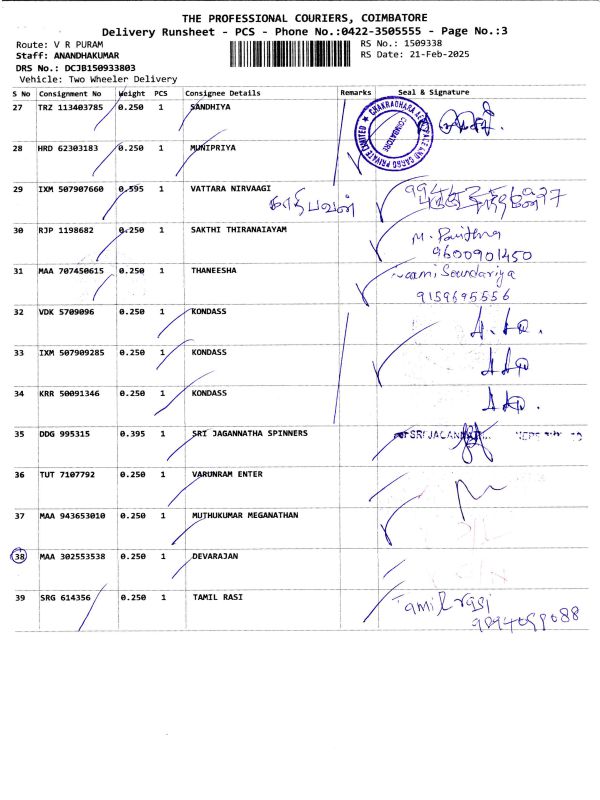 THE PROFESSIONAL COURIERS, COIMBATORE
Delivery Runsheet - PCS - Phone No.:0422-3505555 - Page No.:3
Route: V R PURAM
RS No.: 1509338
Staff: ANANDHAKUMAR
RS Date: 21-Feb-2025
DRS No.: DCJB150933803
Vehicle: Two Wheeler Delivery
S No Consignment No Weight PCS Consignee Details Remarks Seal & Signature
27 TRZ 113403785 0.250 1 SANDHIYA
28 HRD 62303183 0.250 1 MUNIPRIYA
29 IXM 507907660 0.595 1 VATTARA NIRVAAGI
30 RJP 1198682 0.250 1 SAKTHI THIRANAIAYAM
9600901450
31 MAA 707450615 0.250 1 THANEESHA
Soundariya
9159695556
32 VDK 5709096 0.250 1 KONDASS
33 IXM 507909285 0.250 1 KONDASS
34 KRR 50091346 0.250 1 KONDASS
35 DDG 995315 0.395 1 SRI JAGANNATHA SPINNERS
36 TUT 7107792 0.250 1 VARUNRAM ENTER
37 MAA 943653010 0.250 1 MUTHUKUMAR MEGANATHAN
38 MAA 302553538 0.250 1 DEVARAJAN
39 SRG 614356 0.250 1 TAMIL RASI Tamil rasi